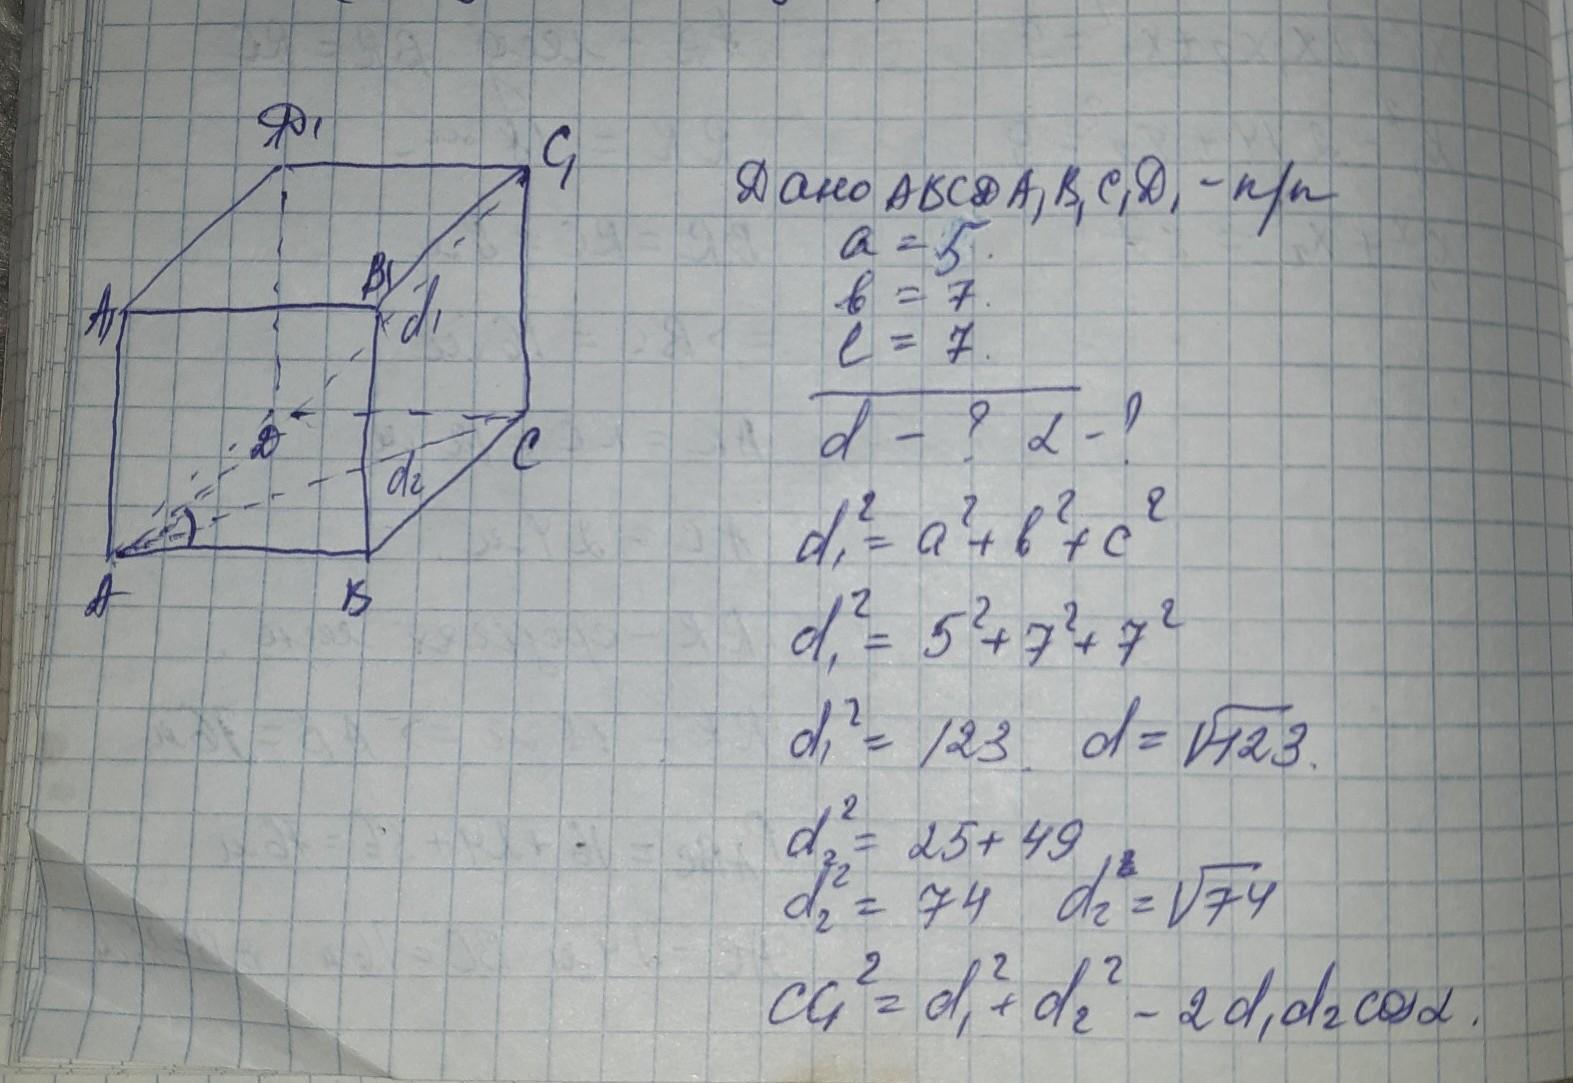 D₁
C₁
A₁
B₁
d₁
D
C
d₂
A
B
Дано ABCDA₁B₁C₁D₁ - п/п
a = 5.
b = 7.
c = 7.
d - ? α - ?
d₁² = a² + b² + c²
d₁² = 5² + 7² + 7²
d₁² = 123. d = √123.
d₂² = 25 + 49
d₂² = 74 d₂ = √74
CC₁² = d₁² + d₂² - 2d₁d₂cosα.